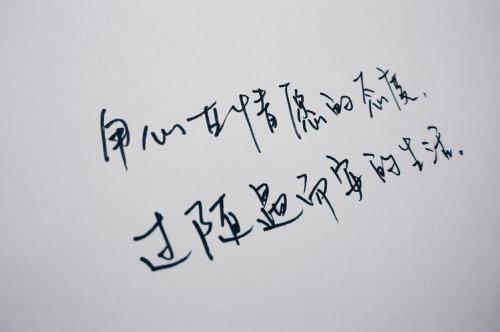 用心甘情愿的态度，
过随遇而安的生活。